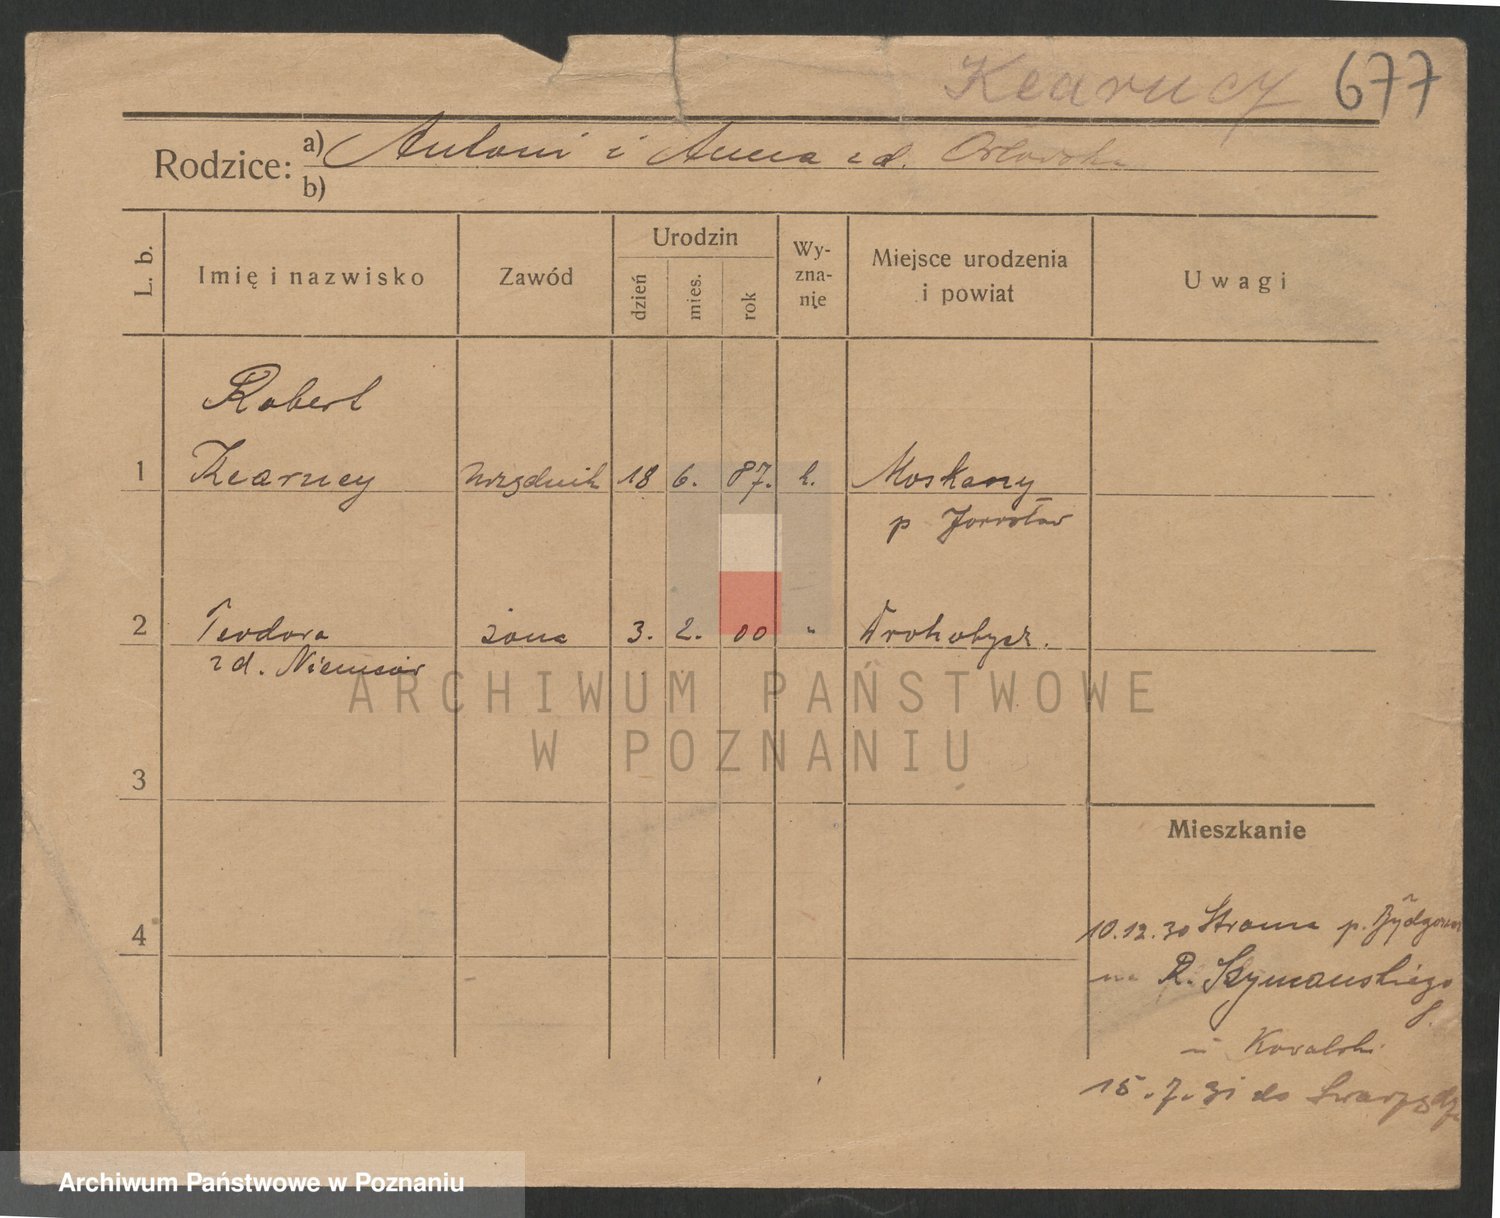 Kearney 677
Rodzice: a) Antoni i Anna zd. Orłowska
b)
L. b. Imię i nazwisko Zawód Urodzin dzień mies. rok Wy-zna-nie Miejsce urodzenia i powiat Uwagi
Robert
1 Kearney urzędnik 18 6. 87. k.
p Jarosław
2 Teodora żona 3. 2. 00 " Drohobycz.
zd. Niemców
ARCHIWUM PAŃSTWOWE
W POZNANIU
3
Mieszkanie
4
10.12.30 p.
R. Szymańskiego
Kowalski
15.7.31 do Swarzędz
Archiwum Państwowe w Poznaniu